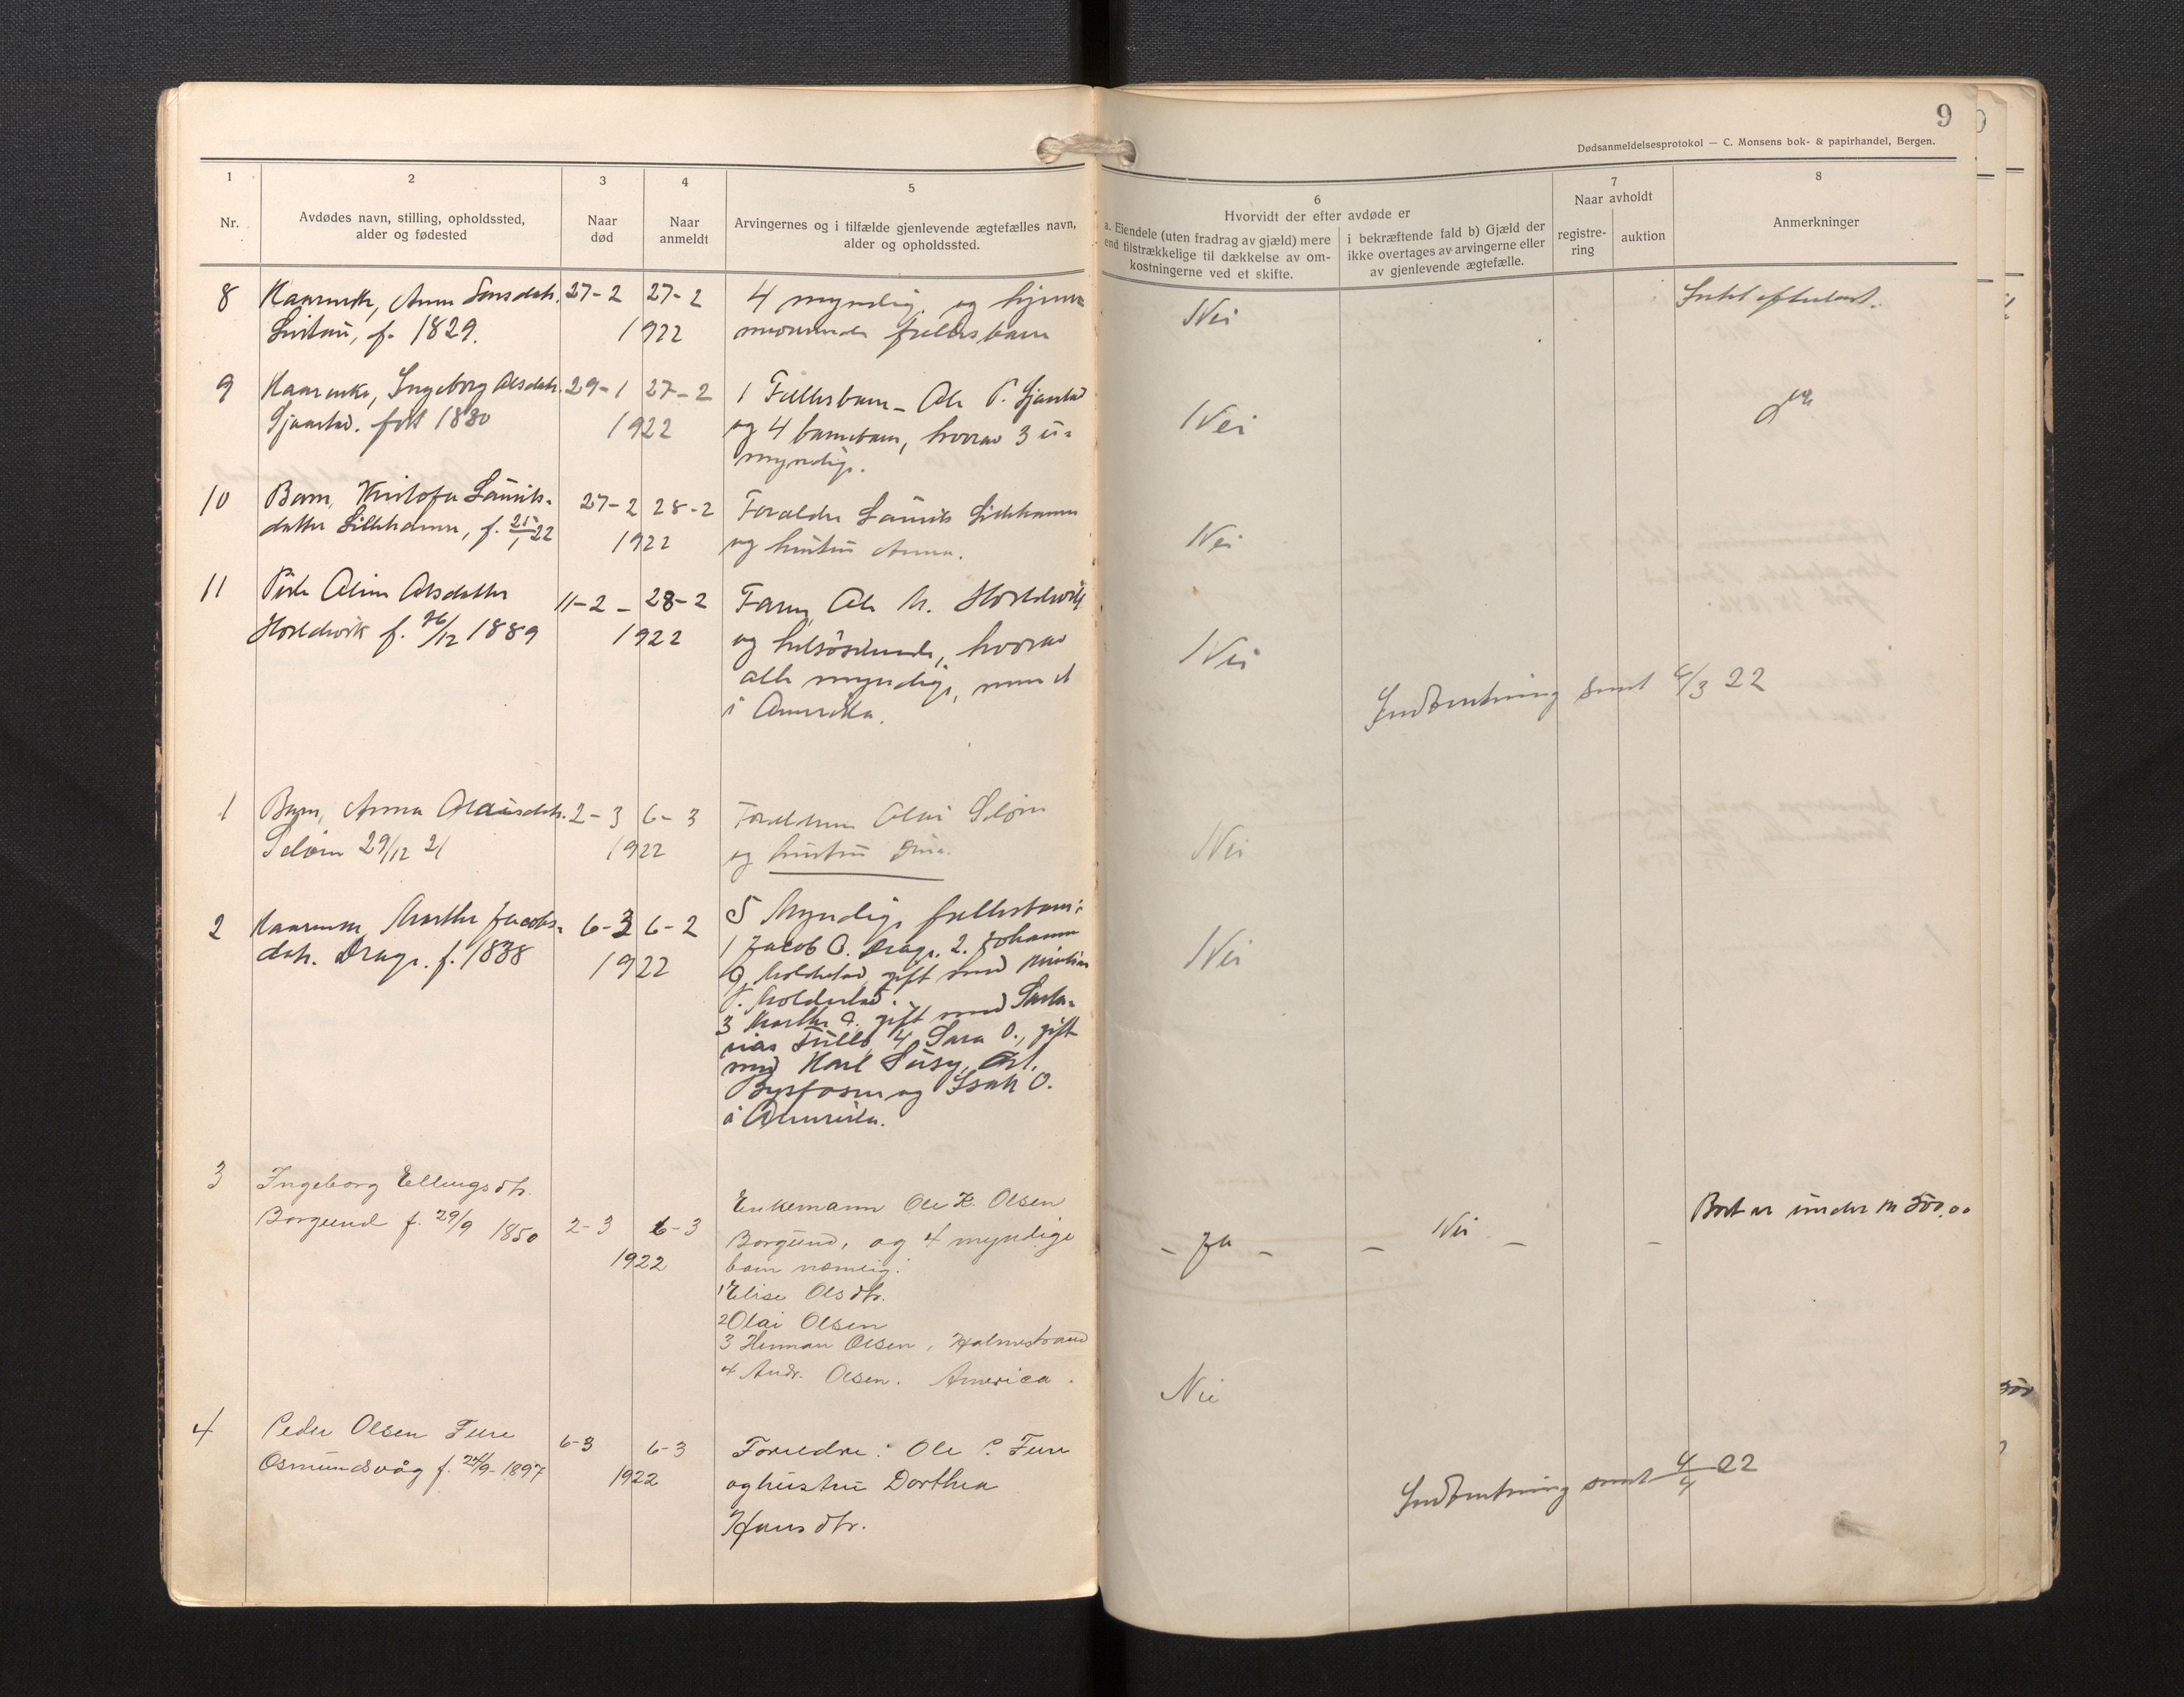 9
Dødsanmeldelsesprotokol — C. Monsens bok- & papirhandel, Bergen.
1
Nr.
2
Avdødes navn, stilling, opholdssted,
alder og fødested
3
Naar
død
4
Naar
anmeldt
5
Arvingernes og i tilfælde gjenlevende ægtefælles navn,
alder og opholdssted.
6
Hvorvidt der efter avdøde er
a. Eiendele (uten fradrag av gjæld) mere
end tilstrækkelige til dækkelse av om-
kostningerne ved et skifte.
i bekræftende fald b) Gjæld der
ikke overtages av arvingerne eller
av gjenlevende ægtefælle.
7
Naar avholdt
registre-
ring
auktion
8
Anmerkninger
8
Anna
f. 1829.
27-2
27-2
1922
4 myndig og
Nei
9
Ingeborg Olsdatr.
født 1830
29-1
27-2
1922
1 Fællesbarn - Ole P.
og 4 barnebarn, hvorav 3 u-
myndige.
Nei
10
Barn, Kristofa Laurits-
datter Lillehamn, f. 25/1 22
27-2
28-2
1922
Forældre Laurits Lillehamn
og hustru Anna.
Nei
11
Pike Oline Olsdatter
f. 26/12 1889
11-2 -
28-2
1922
Farm Ole
og helsøskende, hvorav
alle myndige, men et
i Amerika.
Nei
Indberetning sendt 4/3 22
1
Barn, Anna Olaisdatr.
29/12 21
2-3
6-3
1922
Forældrene Olai
og hustru
Nei
2
Marthe Jacobs-
datr. Drage. f. 1838
6-3
6-2
1922
5 Myndige fællesbarn:
1 Jacob O. Drage. 2. Johanne
O. Moldestad gift med Kristian
J. Moldestad.
3 Marthe O. gift med
4 Sara O., gift
med Karl
og Isak O.
i Amerika.
Nei
3
Ingeborg Ellingsdtr.
Borgund f. 29/9 1850
2-3
6-3
1922
Enkemann Ole H. Olsen
Borgund, og 4 myndige
barn nemlig:
1 Elise Olsdtr.
2 Olai Olsen
3 Herman Olsen, Holmestrand
4 Andr. Olsen. America.
- Ja -
- Nei -
-
Boet er under kr 500,00
4
Peder Olsen Fure
Osmundsvåg f. 24/9-1897
6-3
6-3
1922
Forældre: Ole P. Fure
og hustru Dorthea
Hansdtr.
Nei
Indberetning sendt 4/4 22